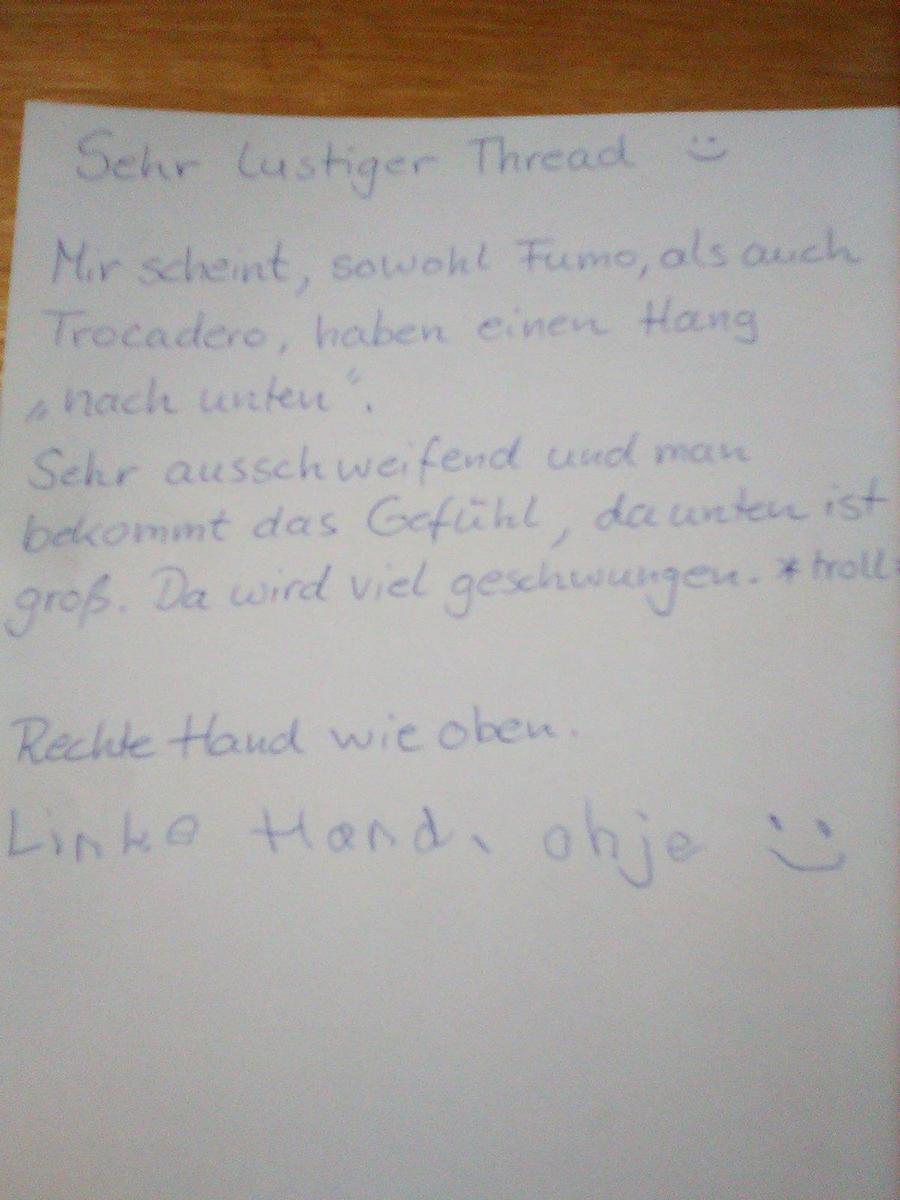 Sehr lustiger Thread :)
Mir scheint, sowohl Fumo, als auch
Trocadero, haben einen Hang
„nach unten“.
Sehr ausschweifend und man
bekommt das Gefühl, da unten ist
groß. Da wird viel geschwungen. *troll*
Rechte Hand wie oben.
Linke Hand, ohje :)